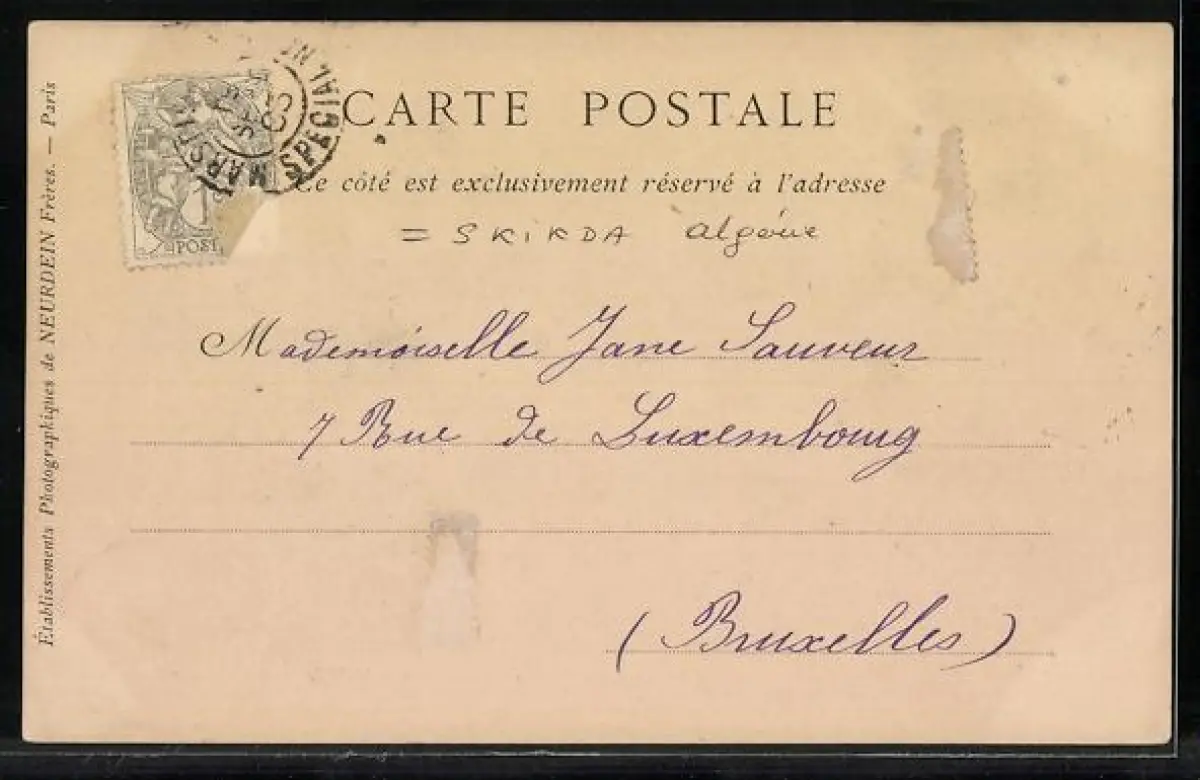 CARTE POSTALE
Ce côté est exclusivement réservé à l'adresse
= SKIKDA algérie
Mademoiselle Jane Sauveur
7 Rue de Luxembourg
(Bruxelles)
Établissements Photographiques de NEURDEIN Frères. — Paris
POST
SPECIAL
03